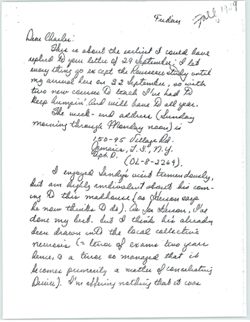 Friday
Dear Charles:
This is about the earliest I could have
replied to your letter of 29 September; I let
every thing go except the Rousseau study until
my arrival here on 22 September, so with
two new courses to teach I've had to
keep humpin' and will have to all year.
The week-end address (Sunday
morning through Monday noon) is
150-95 Village Rd.
Jamaica, L.I., N.Y.
Apt. D.
(OL-8-2269).
I enjoyed Sandy's visit tremendously,
but am highly ambivalent about his com-
ing to this madhouse (as
he now thinks to do). As for, I've
done my best, but I think he's already
been drawn into the local collective
neurosis - a terror of exams two years
hence, a terror so managed that it
becomes primarily a matter of
. I'm offering nothing that it was